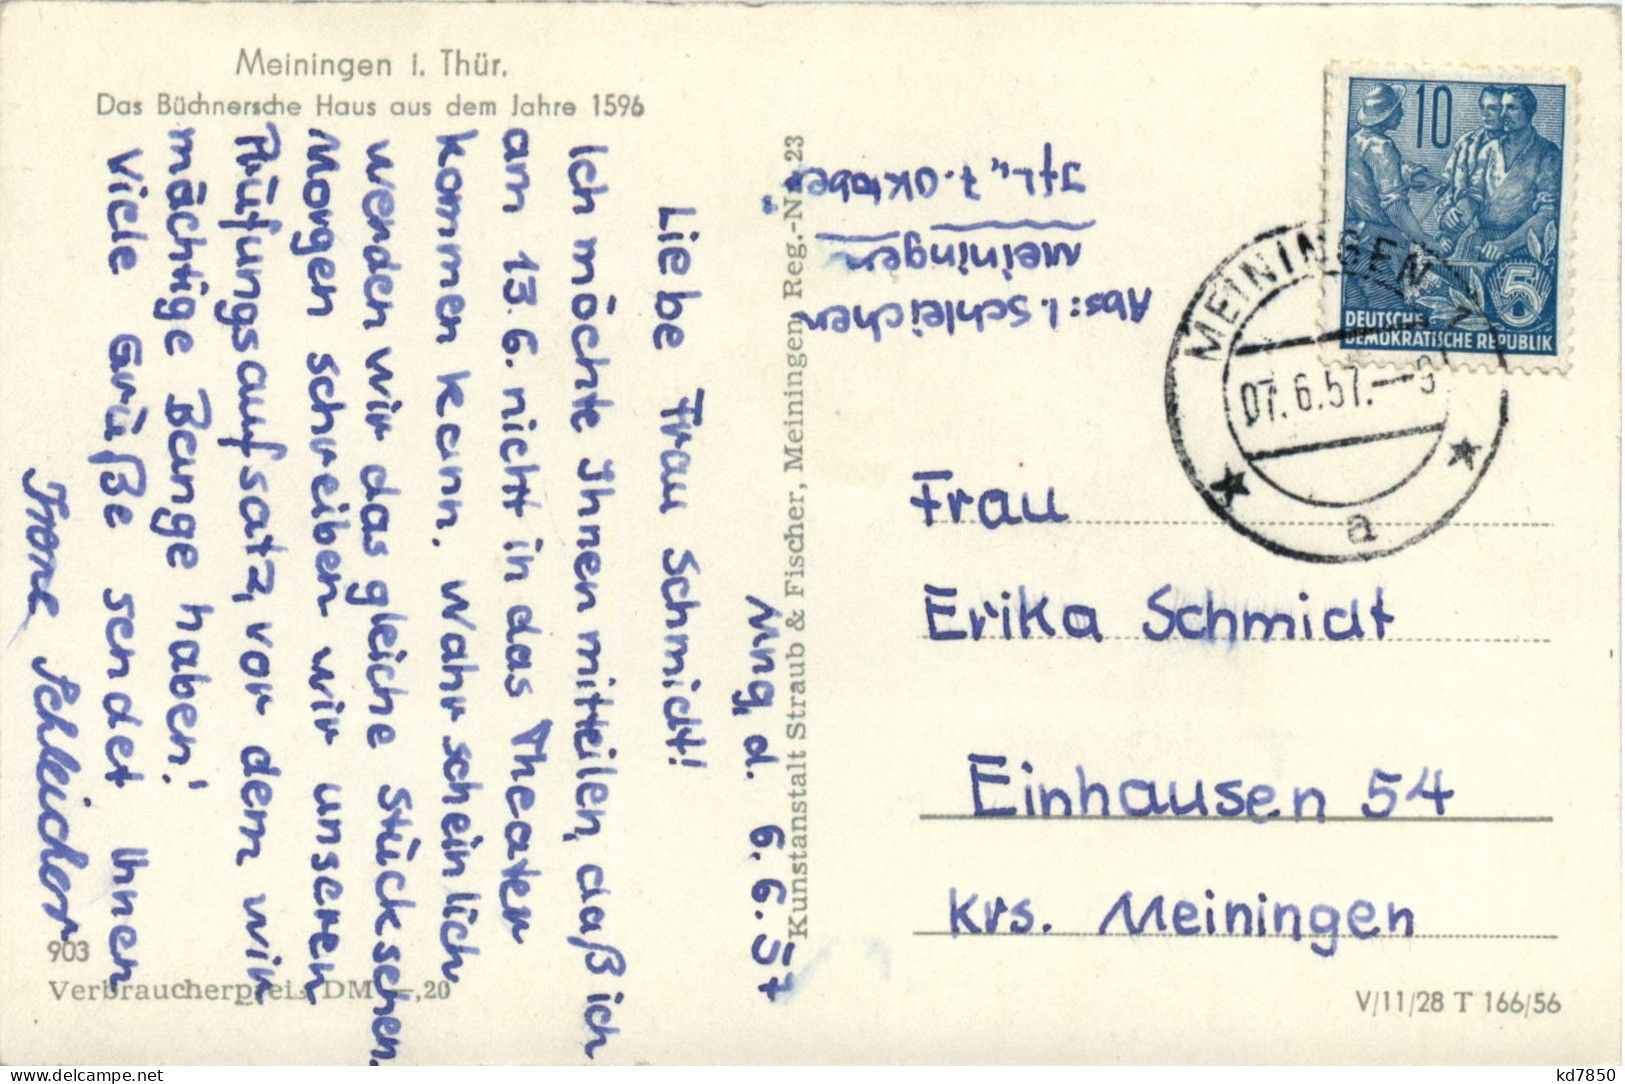 Meiningen i. Thür.
Das Büchnersche Haus aus dem Jahre 1596
Mng, d. 6.6.57
Liebe Frau Schmidt!
Ich möchte Ihnen mitteilen, daß ich
am 13.6. nicht in das Theater
kommen kann. Wahrscheinlich
werden wir das gleiche Stück sehen.
Morgen schreiben wir unseren
Prüfungsaufsatz, vor dem wir
mächtige Bange haben!
Viele Grüße sendet Ihnen
Irone Schleicher
903
Verbraucherpreis DM –,20
Kunstanstalt Straub & Fischer, Meiningen, Reg.-Nr. 23
Abs: I. Schleicher
Meiningen
IfL, 7. Oktober
10
5
DEUTSCHE
DEMOKRATISCHE REPUBLIK
MEININGEN 1
07.6.57.
a
Frau
Erika Schmidt
Einhausen 54
Krs. Meiningen
V/11/28 T 166/56
delcampe.net
kd7850